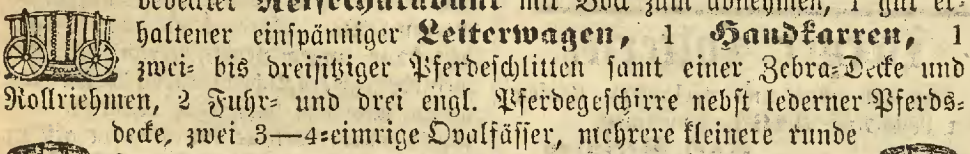 mit Bock zum abnehmen, 1 gut er-
haltener einspänniger Leiterwagen, 1 Handkarren, 1
zwei- bis dreisitziger Pferdeschlitten samt einer Zebra-Decke und
Rollriehmen, 2 Fuhr- und drei engl. Pferdegeschirre nebst lederner Pferds-
decke, zwei 3—4-eimrige Ovalfässer, mehrere kleinere runde